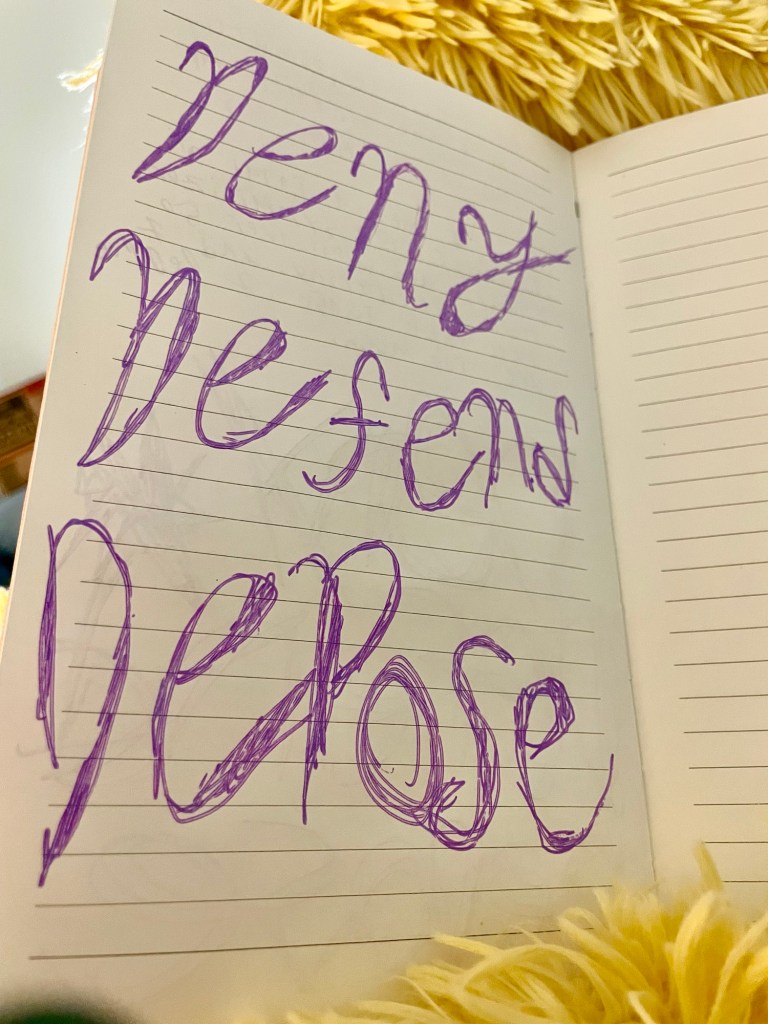 Deny
Defend
Depose